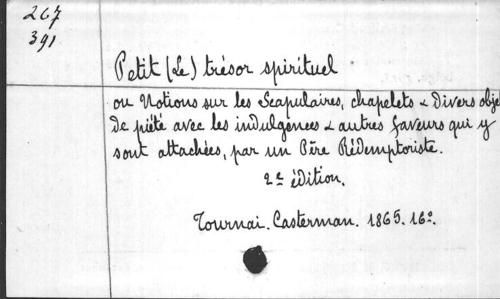 267
391
Petit (Le) trésor spirituel
ou Notions sur les Scapulaires, chapelets & divers obje
de piété avec les indulgences & autres faveurs qui y
sont attachées, par un Père Rédemptoriste.
2e édition.
Tournai. Casterman. 1865. 16o.